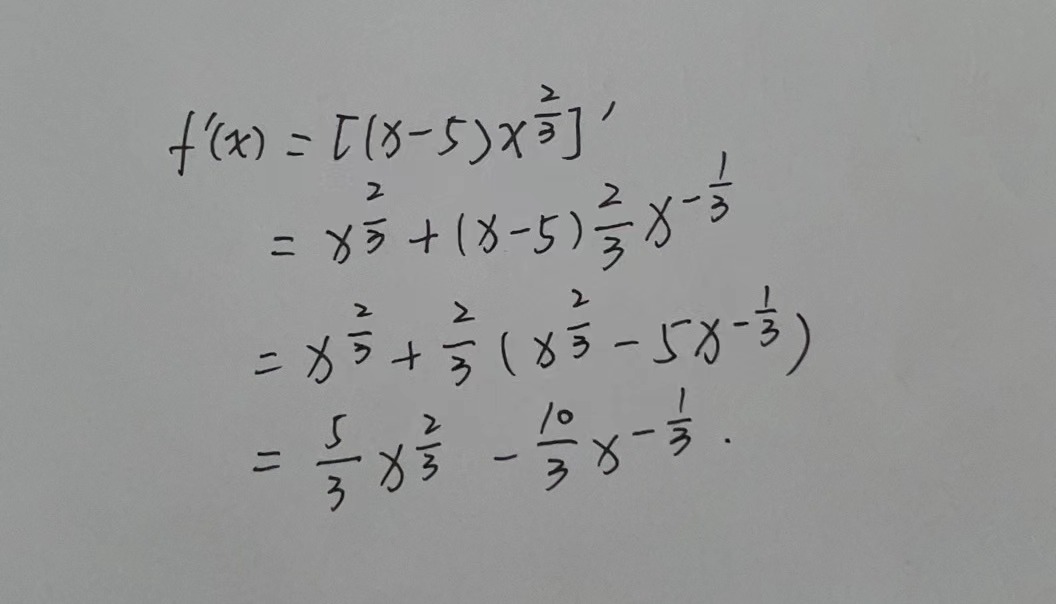 f'(x) = [(x-5)x^{\frac{2}{3}}]'
= x^{\frac{2}{3}} + (x-5)\frac{2}{3}x^{-\frac{1}{3}}
= x^{\frac{2}{3}} + \frac{2}{3}(x^{\frac{2}{3}} - 5x^{-\frac{1}{3}})
= \frac{5}{3}x^{\frac{2}{3}} - \frac{10}{3}x^{-\frac{1}{3}}.